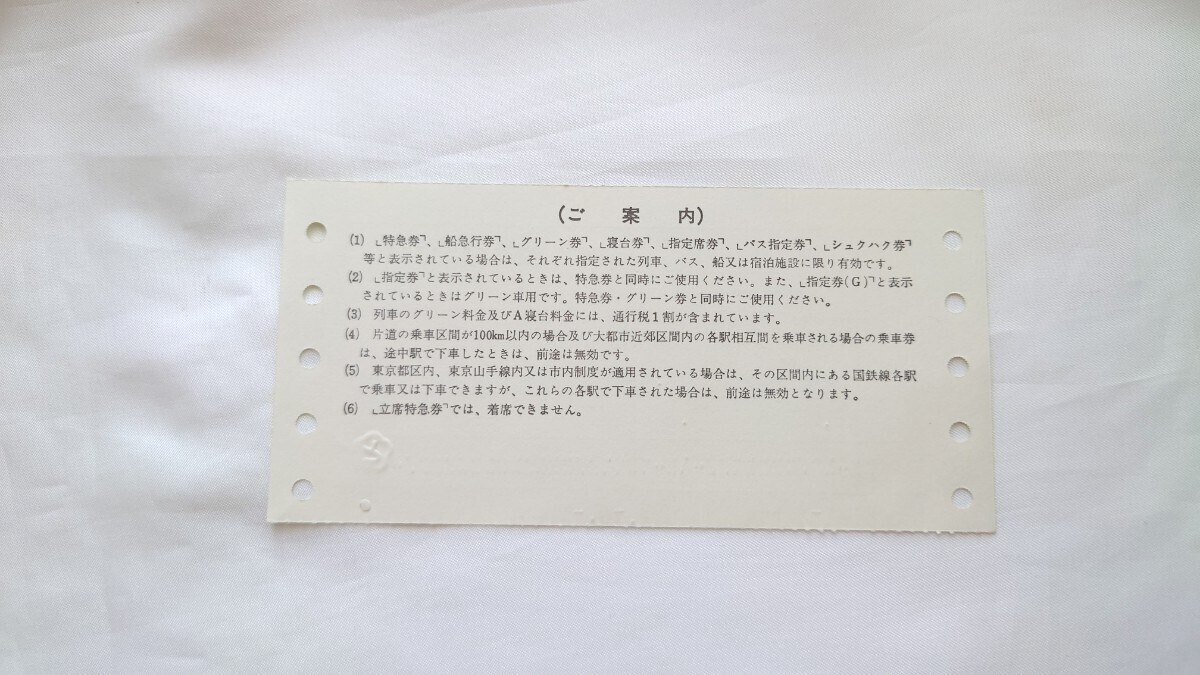 (ご案内)
(1) ｢特急券｣、｢船急行券｣、｢グリーン券｣、｢寝台券｣、｢指定席券｣、｢バス指定券｣、｢シュクハク券｣
等と表示されている場合は、それぞれ指定された列車、バス、船又は宿泊施設に限り有効です。
(2) ｢指定券｣と表示されているときは、特急券と同時にご使用ください。また、｢指定券(G)｣と表示
されているときはグリーン車用です。特急券・グリーン券と同時にご使用ください。
(3) 列車のグリーン料金及びA寝台料金には、通行税1割が含まれています。
(4) 片道の乗車区間が100km以内の場合及び大都市近郊区間内の各駅相互間を乗車される場合の乗車券
は、途中駅で下車したときは、前途は無効です。
(5) 東京都区内、東京山手線内又は市内制度が適用されている場合は、その区間内にある国鉄線各駅
で乗車又は下車できますが、これらの各駅で下車された場合は、前途は無効となります。
(6) ｢立席特急券｣では、着席できません。